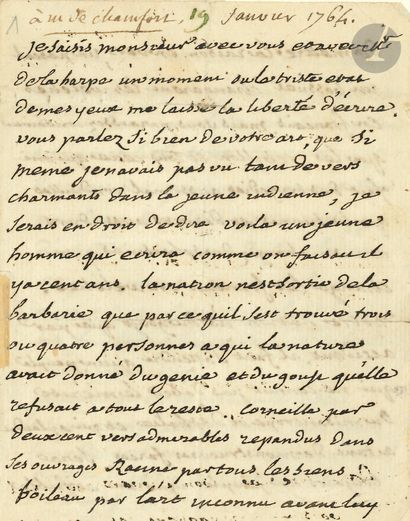 1 à m de chamfort, 19 Janvier 1764.
je saisis monsieur avec vous et avec Mr
de la harpe un moment ou le triste etat
de mes yeux me laisse la liberté d'écrire.
vous parlez si bien de votre art, que si
meme je navais pas vu tant de vers
charmants dans la jeune indienne, je
serais en droit de dire voila un jeune
homme qui ecrira comme on faisait il
ya cent ans. la nation nest sortie de la
barbarie que par ce quil sest trouvé trois
ou quatre personnes a qui la nature
avait donné du genie et du goust quelle
refusait a tout le reste. corneille par
deux cent vers admirables repandus dans
ses ouvrages Racine par tous les siens
boileau par l'art inconnu avant luy